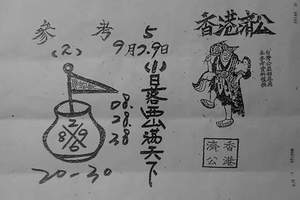 香港濟公
參考 5
(2) 9月29日
(1)日落西山滿天下
08.
28.
38
2
8 9
6
20-30
香港
濟公